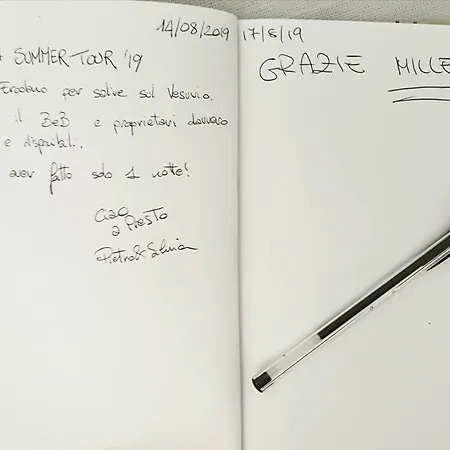 14/08/2019
SUMMER TOUR '19
Ercolano per salire sul Vesuvio.
il BeB e proprietari davvero
e disponibili.
aver fatto solo 1 notte!
Ciao
a Presto
Pietro & Silvia
17/8/19
GRAZIE MILLE